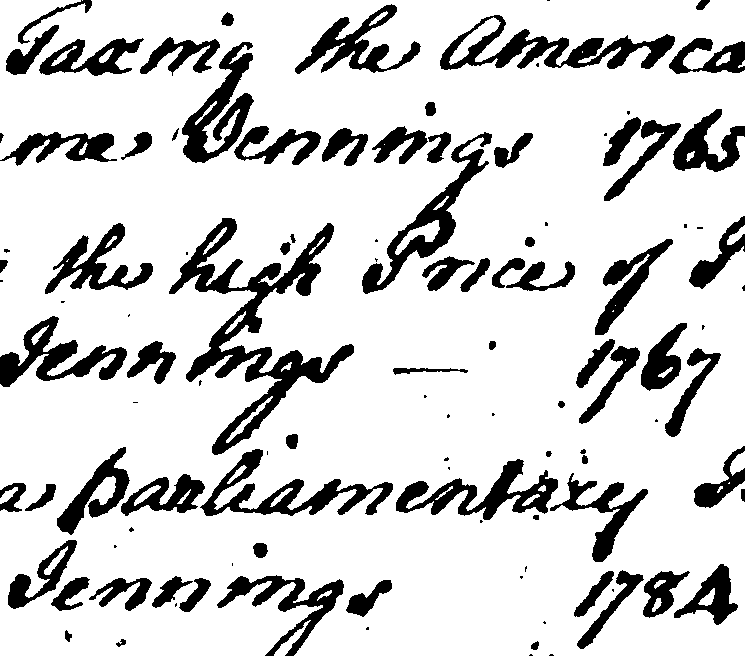 Taxing the America
me Jennings 1765
the high Price of P
Jennings — 1767
a parliamentary R
Jennings 1784